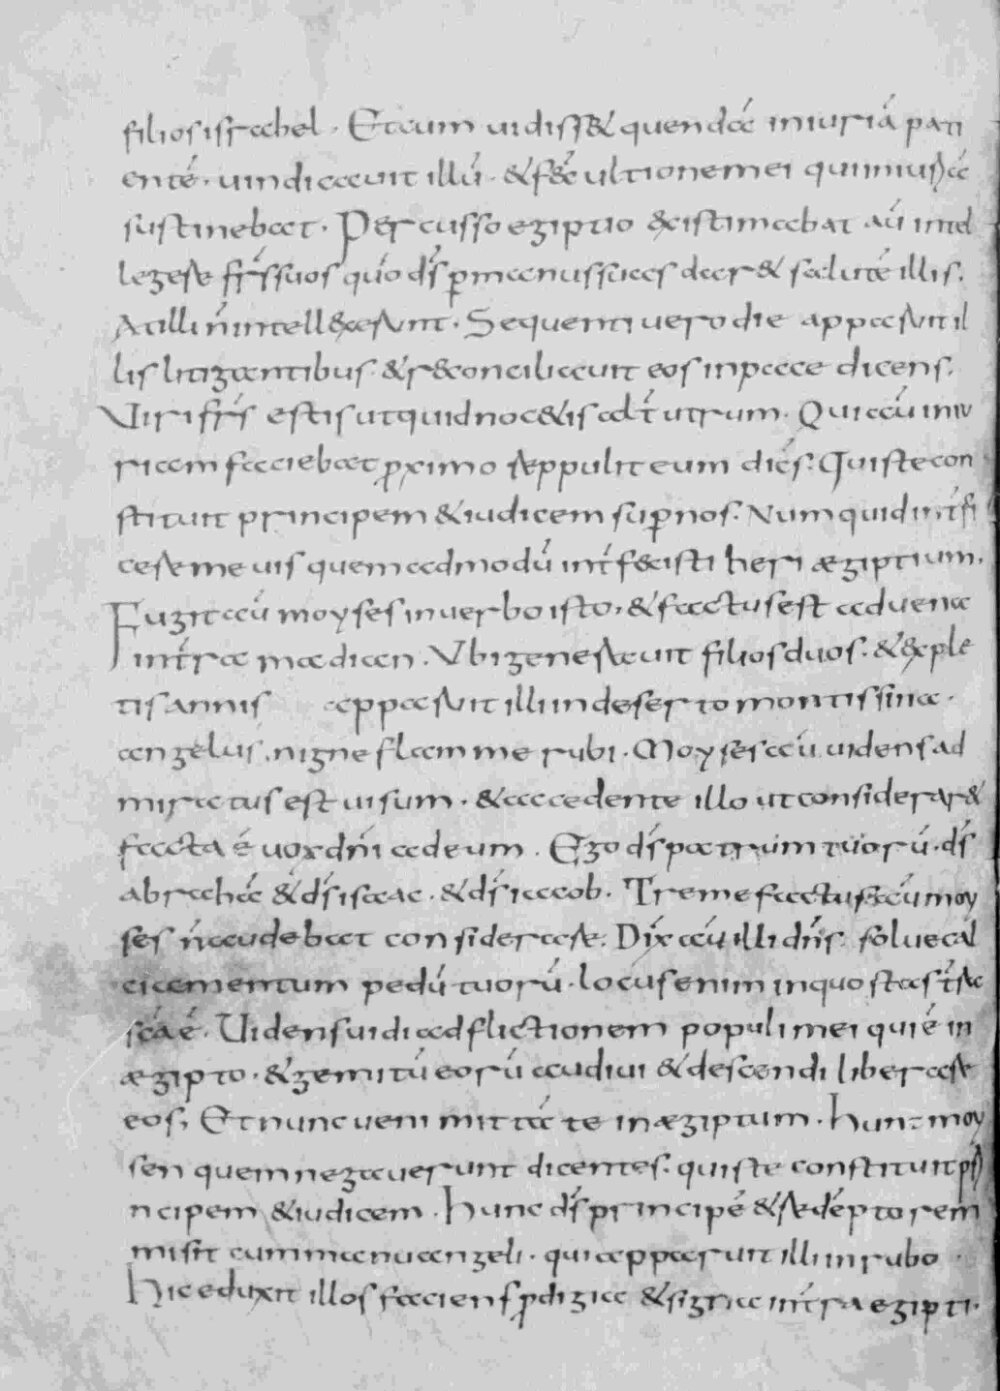 filiosisrahel. Etcum uidiss& quendā iniuriā pati
entē. uindicauit illū. & fec ultionem ei qui iniuriā
sustinebat. Percusso egiptio existimabat aū intel
legere frs suos qūo ds p manus suas dar& salutē illis.
At illi n̄ intellexerunt. Sequenti uero die apparuit il
lis litigantibus & reconciliauit eos in pace dicens.
Viri frs estis ut quid noc&is alt utrum. Qui aū iniu
riam faciebat proximo reppulit eum dices. Quis te con
stituit principem & iudicem sup nos. Num quid int̄fi
cere me uis quem admodū int̄fecisti heri ægiptium.
Fugit aū moyses in uerbo isto, & factus est aduena
in t̄ra madian. Vbi generauit filios duos. & exple
tis annis apparuit illi in deserto montis sina.
angelus. nigne flamme rubi. Moyses aū uidens ad
miratus est uisum. & accedente illo ut considerar&
facta ē uox dn̄i adeum. Ego ds patrum tuorū. ds
abrahā & ds isaac. & ds iacob. Tremefactus aū moy
ses n̄ audebat considerare. Dix aū illi dn̄s. solue cal
ciamentum pedū tuorū. locus enim in quo stas t̄ra
scā ē. Uidens uidi adflictionem populi mei qui ē in
ægipto. & gemitū eorū audiui & descendi liberare
eos. Et nunc ueni mittā te in ægiptum. hunc moy
sen quem negauerunt dicentes. quis te constituit pri
ncipem & iudicem. hunc ds principē & redēptorem
misit cum manu angeli. qui apparuit illi in rubo
hic eduxit illos faciens prodigia & signa in t̄ra egipti.